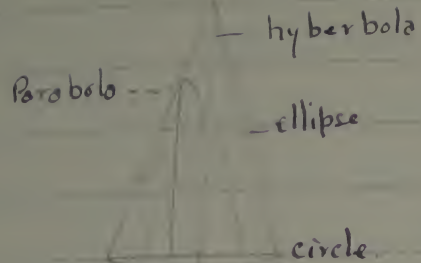 hyberbola
Parabolo
ellipse
circle